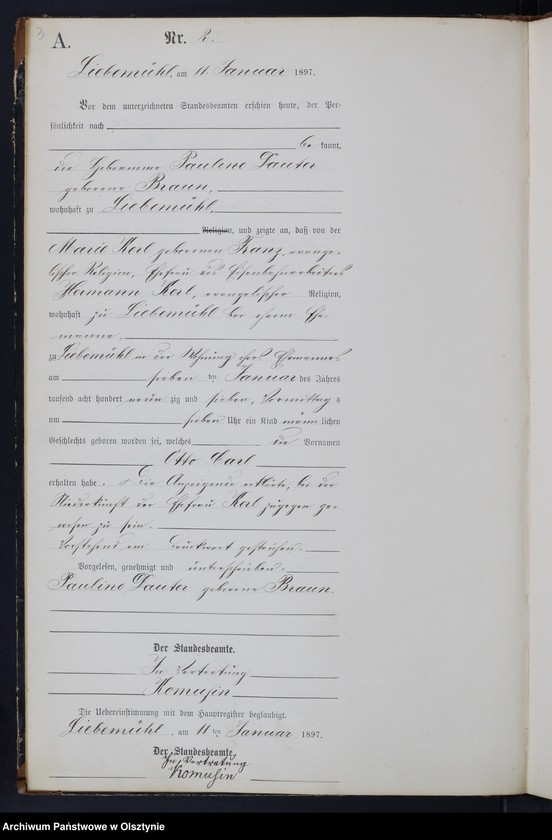 3
A.
Nr. 2.
Liebemühl, am 11. Januar 1897.
Vor dem unterzeichneten Standesbeamten erschien heute, der Per-
sönlichkeit nach
be kannt,
die Hebeamme Pauline Dauter
geborene Braun,
wohnhaft zu Liebemühl,
Religion, und zeigte an, daß von der
Marie Kerl geborenen Franz, evange-
lischer Religion, Ehefrau des Eisenbahnarbeiters
Hermann Kerl, evangelischer Religion,
wohnhaft zu Liebemühl bei ihrem Ehe-
manne,
zu Liebemühl in der Wohnung ihres Ehemannes
am sieben ten Januar des Jahres
tausend acht hundert neun zig und sieben, Vormittags
um sieben Uhr ein Kind männlichen
Geschlechts geboren worden sei, welches die Vornamen
Otto Carl
erhalten habe. Die Anzeigende erklärte, bei der
Niederkunft der Ehefrau Kerl zugegen ge-
wesen zu sein.
Vorstehend ein Druckwort gestrichen.
Vorgelesen, genehmigt und unterschrieben.
Pauline Dauter geborene Braun.
Der Standesbeamte.
In Vertretung
Komusin
Die Uebereinstimmung mit dem Hauptregister beglaubigt.
Liebemühl, am 11 ten Januar 1897.
Der Standesbeamte.
In Vertretung
Komusin
Archiwum Państwowe w Olsztynie